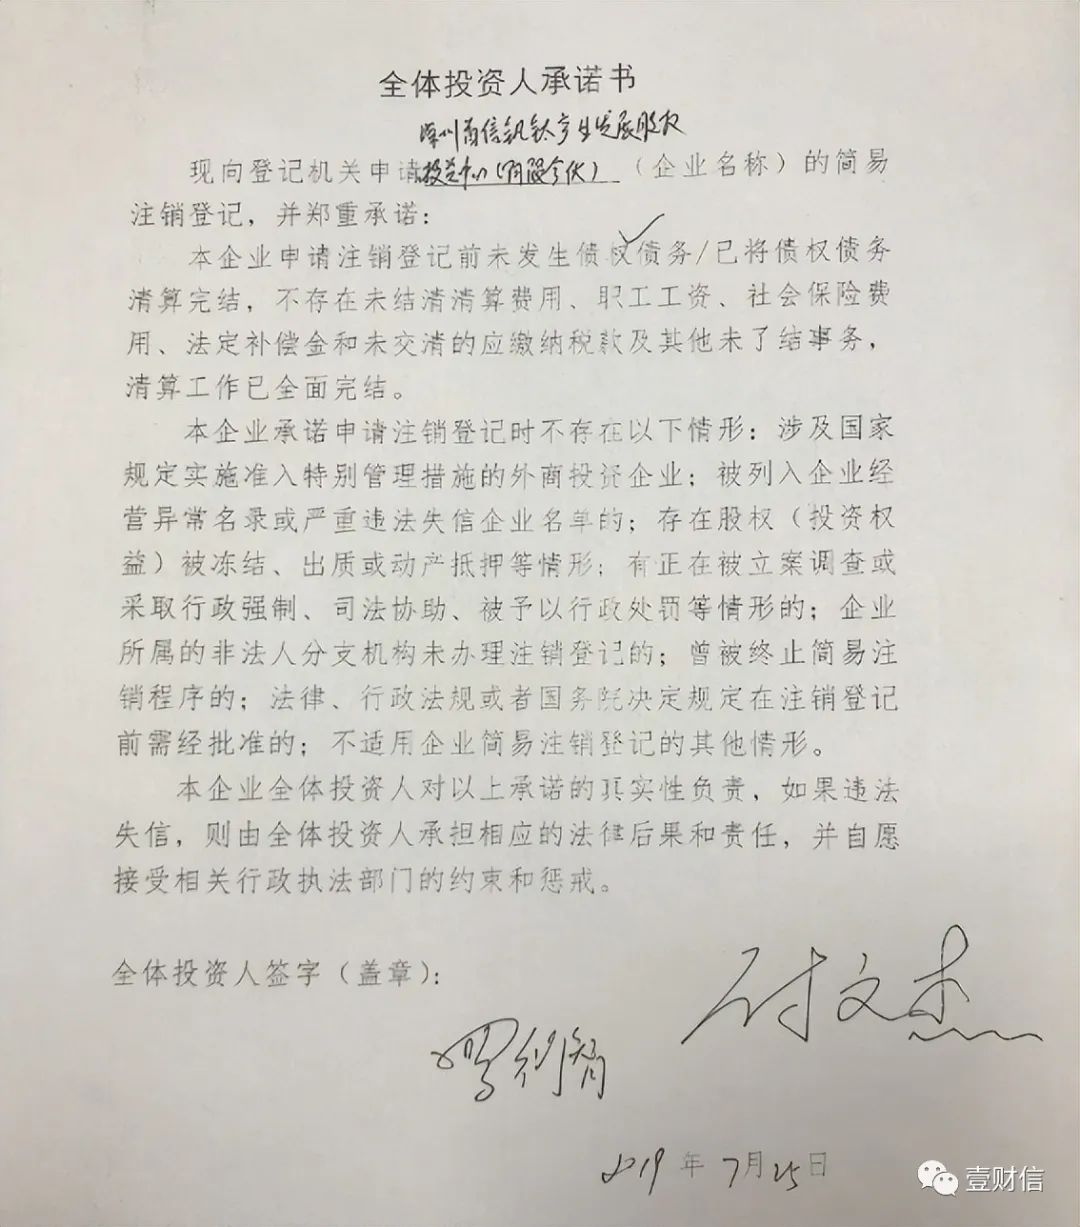 全体投资人承诺书
信钒钛产业发展股权
现向登记机关申请投资中心(有限合伙)(企业名称)的简易
注销登记，并郑重承诺：
本企业申请注销登记前未发生债权债务/已将债权债务
清算完结，不存在未结清清算费用、职工工资、社会保险费
用、法定补偿金和未交清的应缴纳税款及其他未了结事务，
清算工作已全面完结。
本企业承诺申请注销登记时不存在以下情形：涉及国家
规定实施准入特别管理措施的外商投资企业；被列入企业经
营异常名录或严重违法失信企业名单的；存在股权（投资权
益）被冻结、出质或动产抵押等情形；有正在被立案调查或
采取行政强制、司法协助、被予以行政处罚等情形的；企业
所属的非法人分支机构未办理注销登记的；曾被终止简易注
销程序的；法律、行政法规或者国务院决定规定在注销登记
前需经批准的；不适用企业简易注销登记的其他情形。
本企业全体投资人对以上承诺的真实性负责，如果违法
失信，则由全体投资人承担相应的法律后果和责任，并自愿
接受相关行政执法部门的约束和惩戒。
全体投资人签字（盖章）：
文杰
2019年7月25日
壹财信